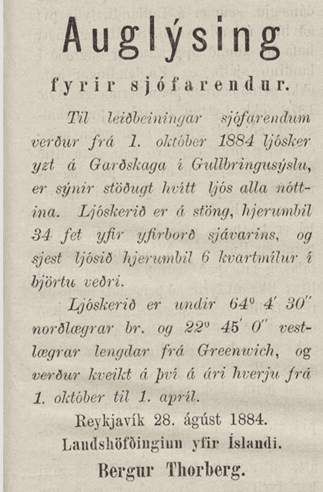 Auglýsing
fyrir sjófarendur.
Til leiðbeiningar sjófarendum
verður frá 1. október 1884 ljósker
yzt á Garðskaga í Gullbringusýslu,
er sýnir stöðugt hvítt ljós alla nótt-
ina. Ljóskerið er á stöng, hjerumbil
34 fet yfir yfirborð sjávarins, og
sjest ljósið hjerumbil 6 kvartmílur í
björtu veðri.
Ljóskerið er undir 64° 4' 30"
norðlægrar br. og 22° 45' 0" vest-
lægrar lengdar frá Greenwich, og
verður kveikt á því á ári hverju frá
1. október til 1. apríl.
Reykjavík 28. ágúst 1884.
Landshöfðinginn yfir Íslandi.
Bergur Thorberg.